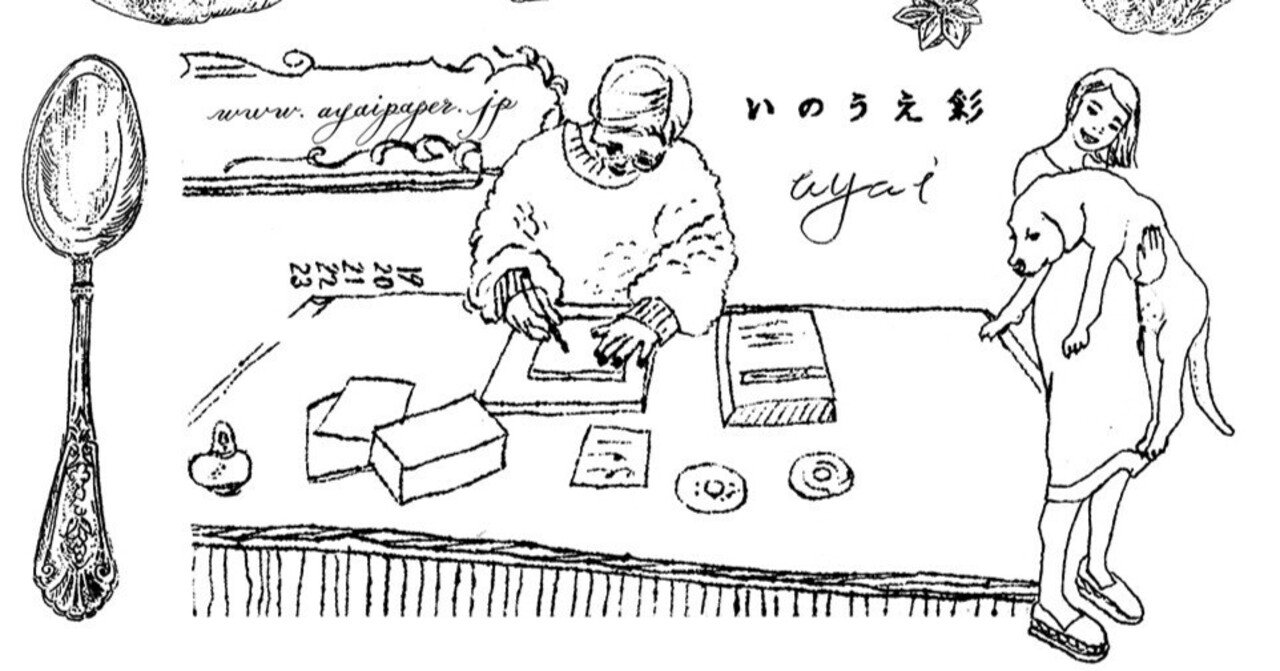 www.ayaipaper.jp
いのうえ彩
ayai
19
20
21
22
23